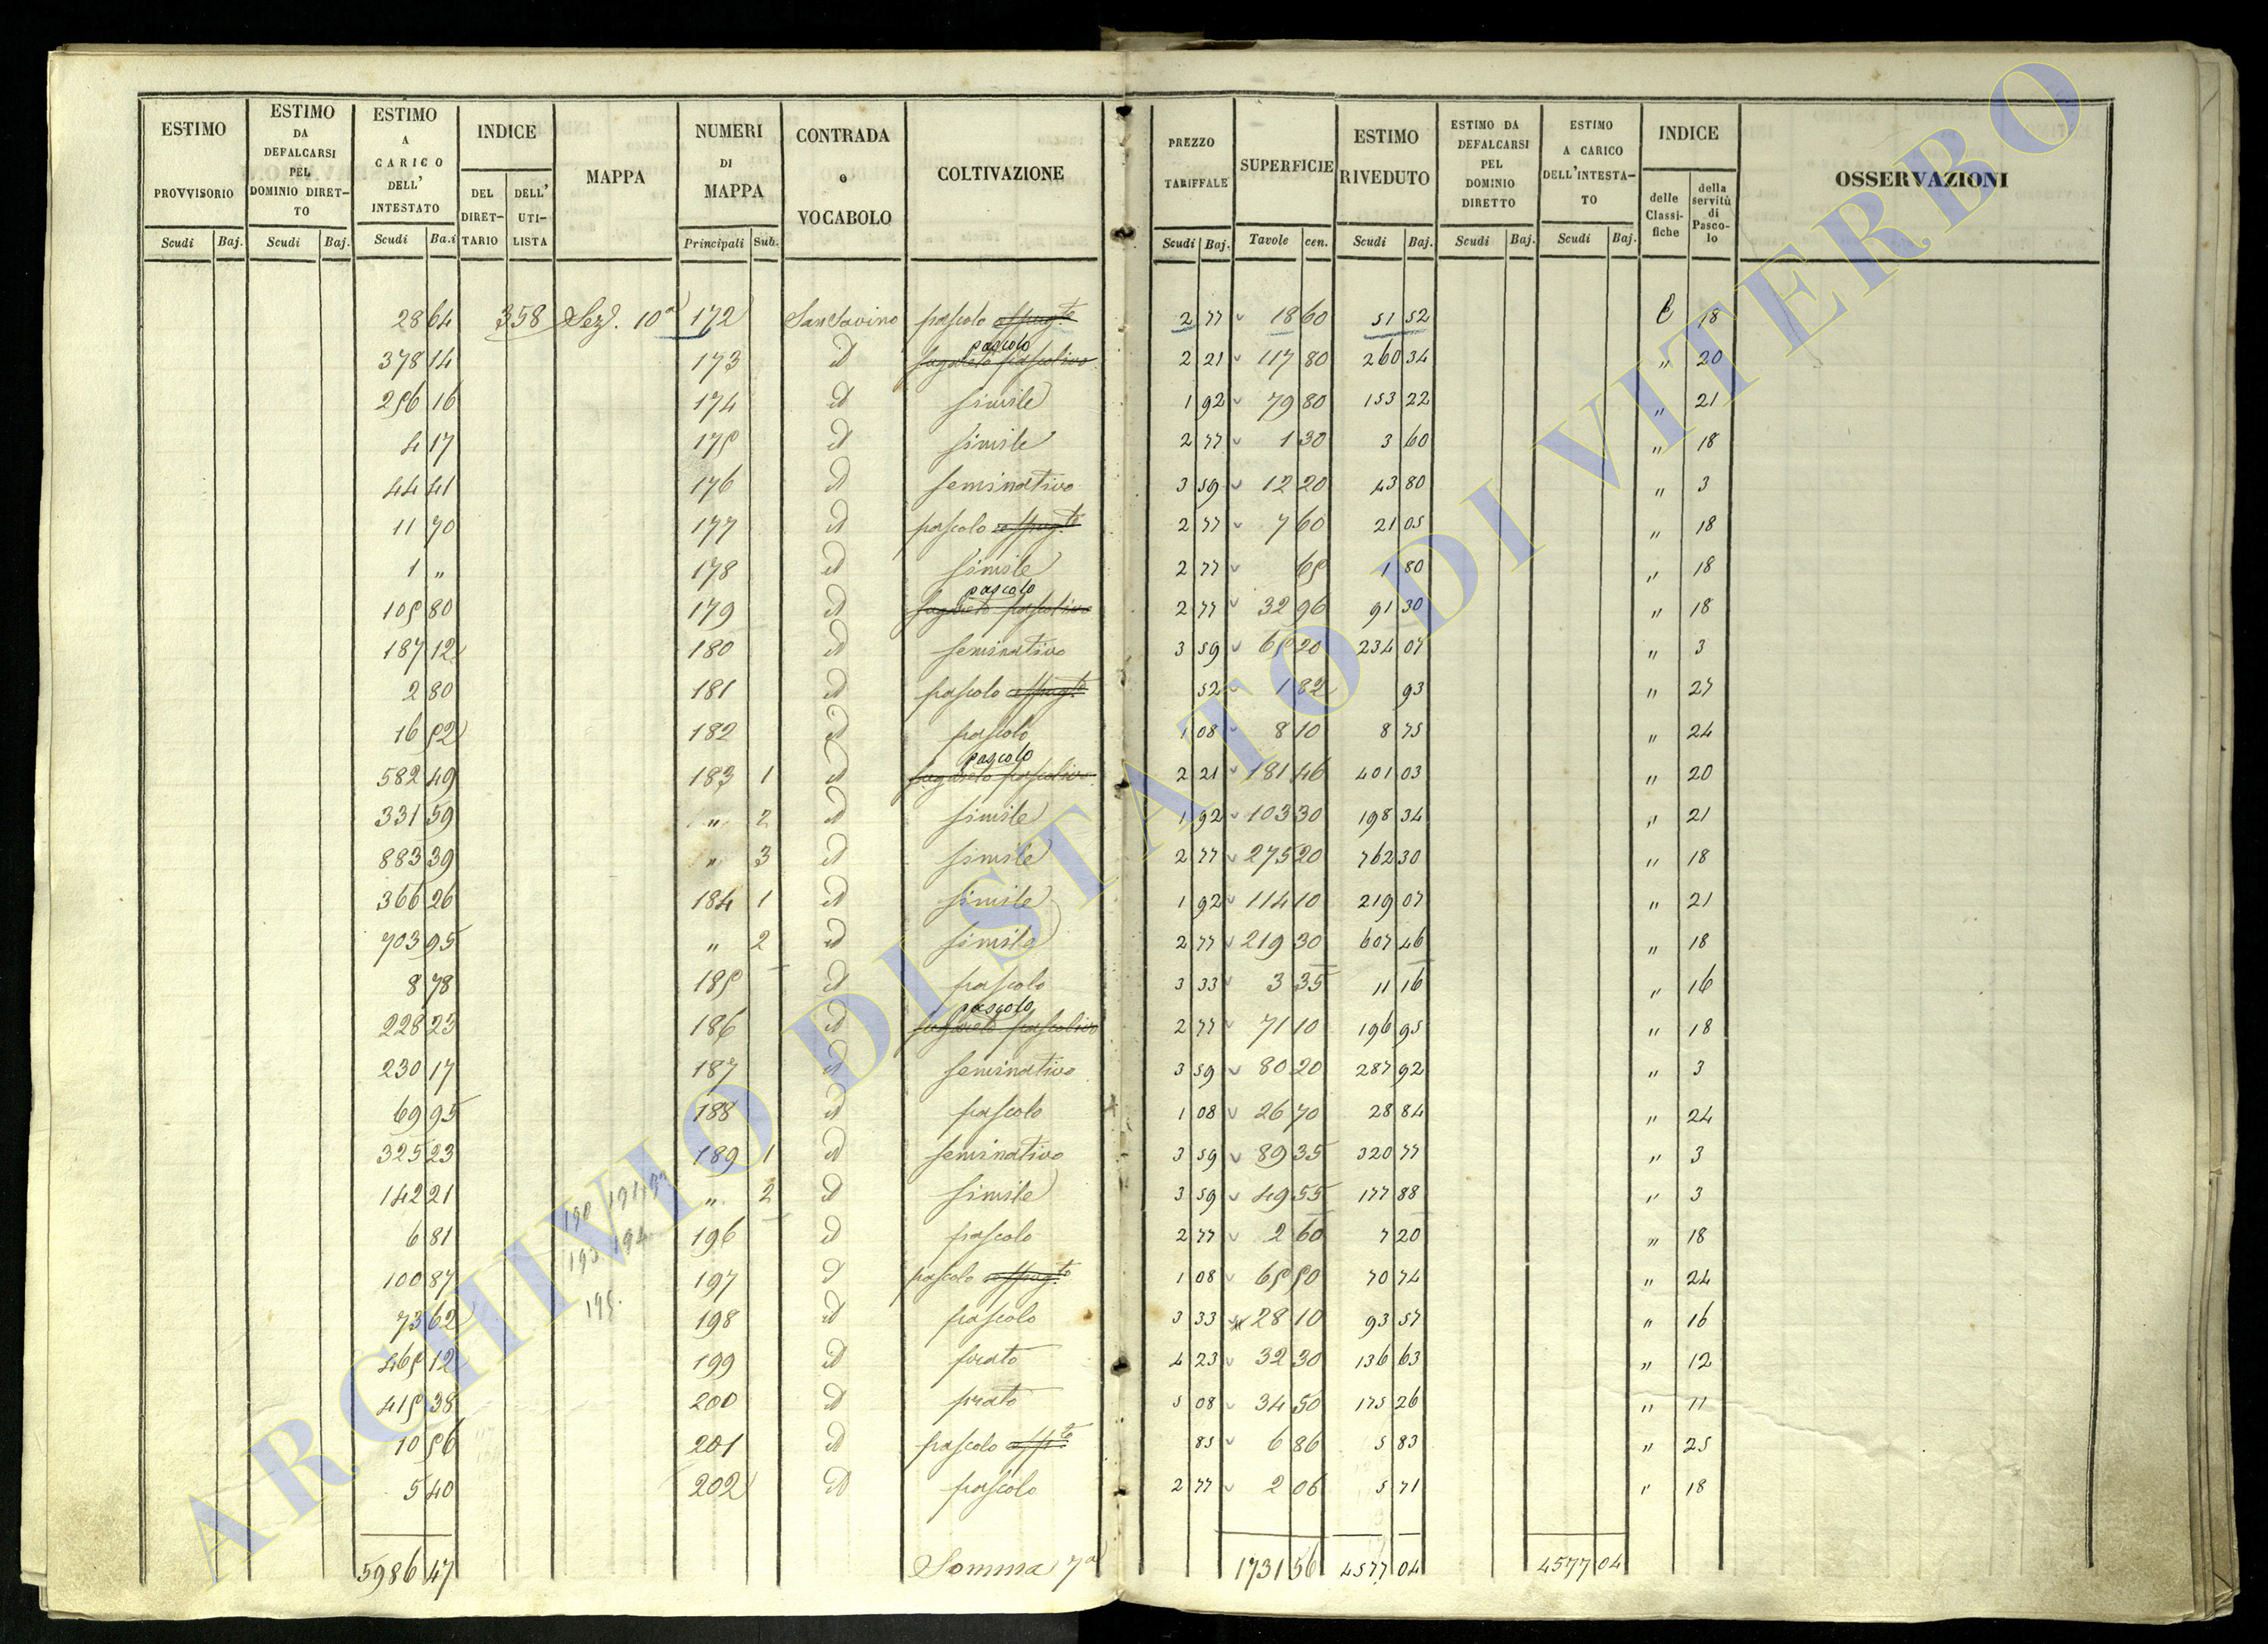 ESTIMO PROVVISORIO Scudi Baj.
ESTIMO DA DEFALCARSI PEL DOMINIO DIRETTO Scudi Baj.
ESTIMO A CARICO DELL' INTESTATO Scudi Ba.i
INDICE DEL DIRETTARIO DELL' UTILISTA
MAPPA
NUMERI DI MAPPA Principali Sub.
CONTRADA o VOCABOLO
COLTIVAZIONE
PREZZO TARIFFALE Scudi Baj.
SUPERFICIE Tavole cen.
ESTIMO RIVEDUTO Scudi Baj.
ESTIMO DA DEFALCARSI PEL DOMINIO DIRETTO Scudi Baj.
ESTIMO A CARICO DELL'INTESTATO Scudi Baj.
INDICE delle Classifiche della servitù di Pascolo
OSSERVAZIONI
28 64 358 Sez. 10a 172 San Savino pascolo 2 77 18 60 51 52 18
378 14 173 id pascolo 2 21 117 80 260 34 " 20
256 16 174 id simile 1 92 79 80 153 22 " 21
4 17 175 id simile 2 77 1 30 3 60 " 18
44 41 176 id seminativo 3 59 12 20 43 80 " 3
11 70 177 id pascolo 2 77 7 60 21 05 " 18
1 " 178 id simile 2 77 65 1 80 " 18
105 80 179 id pascolo 2 77 32 96 91 30 " 18
187 12 180 id seminativo 3 59 65 20 234 07 " 3
2 80 181 id pascolo 52 1 82 93 " 27
16 52 182 id pascolo 1 08 8 10 8 75 " 24
582 49 183 1 id pascolo 2 21 181 46 401 03 " 20
331 59 " 2 id simile 1 92 103 30 198 34 " 21
883 39 " 3 id simile 2 77 275 20 762 30 " 18
366 26 184 1 id simile 1 92 114 10 219 07 " 21
703 95 " 2 id simile 2 77 219 30 607 46 " 18
8 78 185 id pascolo 3 33 3 35 11 16 " 16
228 23 186 id pascolo 2 77 71 10 196 95 " 18
230 17 187 id seminativo 3 59 80 20 287 92 " 3
69 95 188 id pascolo 1 08 26 70 28 84 " 24
325 23 189 1 id seminativo 3 59 89 35 320 77 " 3
142 21 190 191 " 2 id simile 3 59 49 55 177 88 " 3
6 81 193 194 196 id pascolo 2 77 2 60 7 20 " 18
100 87 195. 197 id pascolo 1 08 65 50 70 74 " 24
73 62 198 id pascolo 3 33 28 10 93 57 " 16
465 12 199 id prato 4 23 32 30 136 63 " 12
415 38 200 id prato 5 08 34 50 175 26 " 11
10 56 201 id pascolo 85 6 86 5 83 " 25
5 40 202 id pascolo 2 77 2 06 5 71 " 18
5986 47 Somma 7a 1731 56 4577 04 4577 04
ARCHIVIO DI STATO DI VITERBO